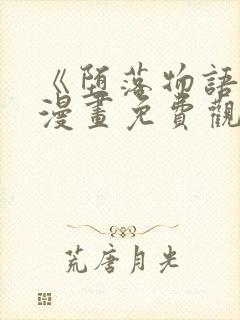 《堕落物語
漫畫免費觀
荒唐月光